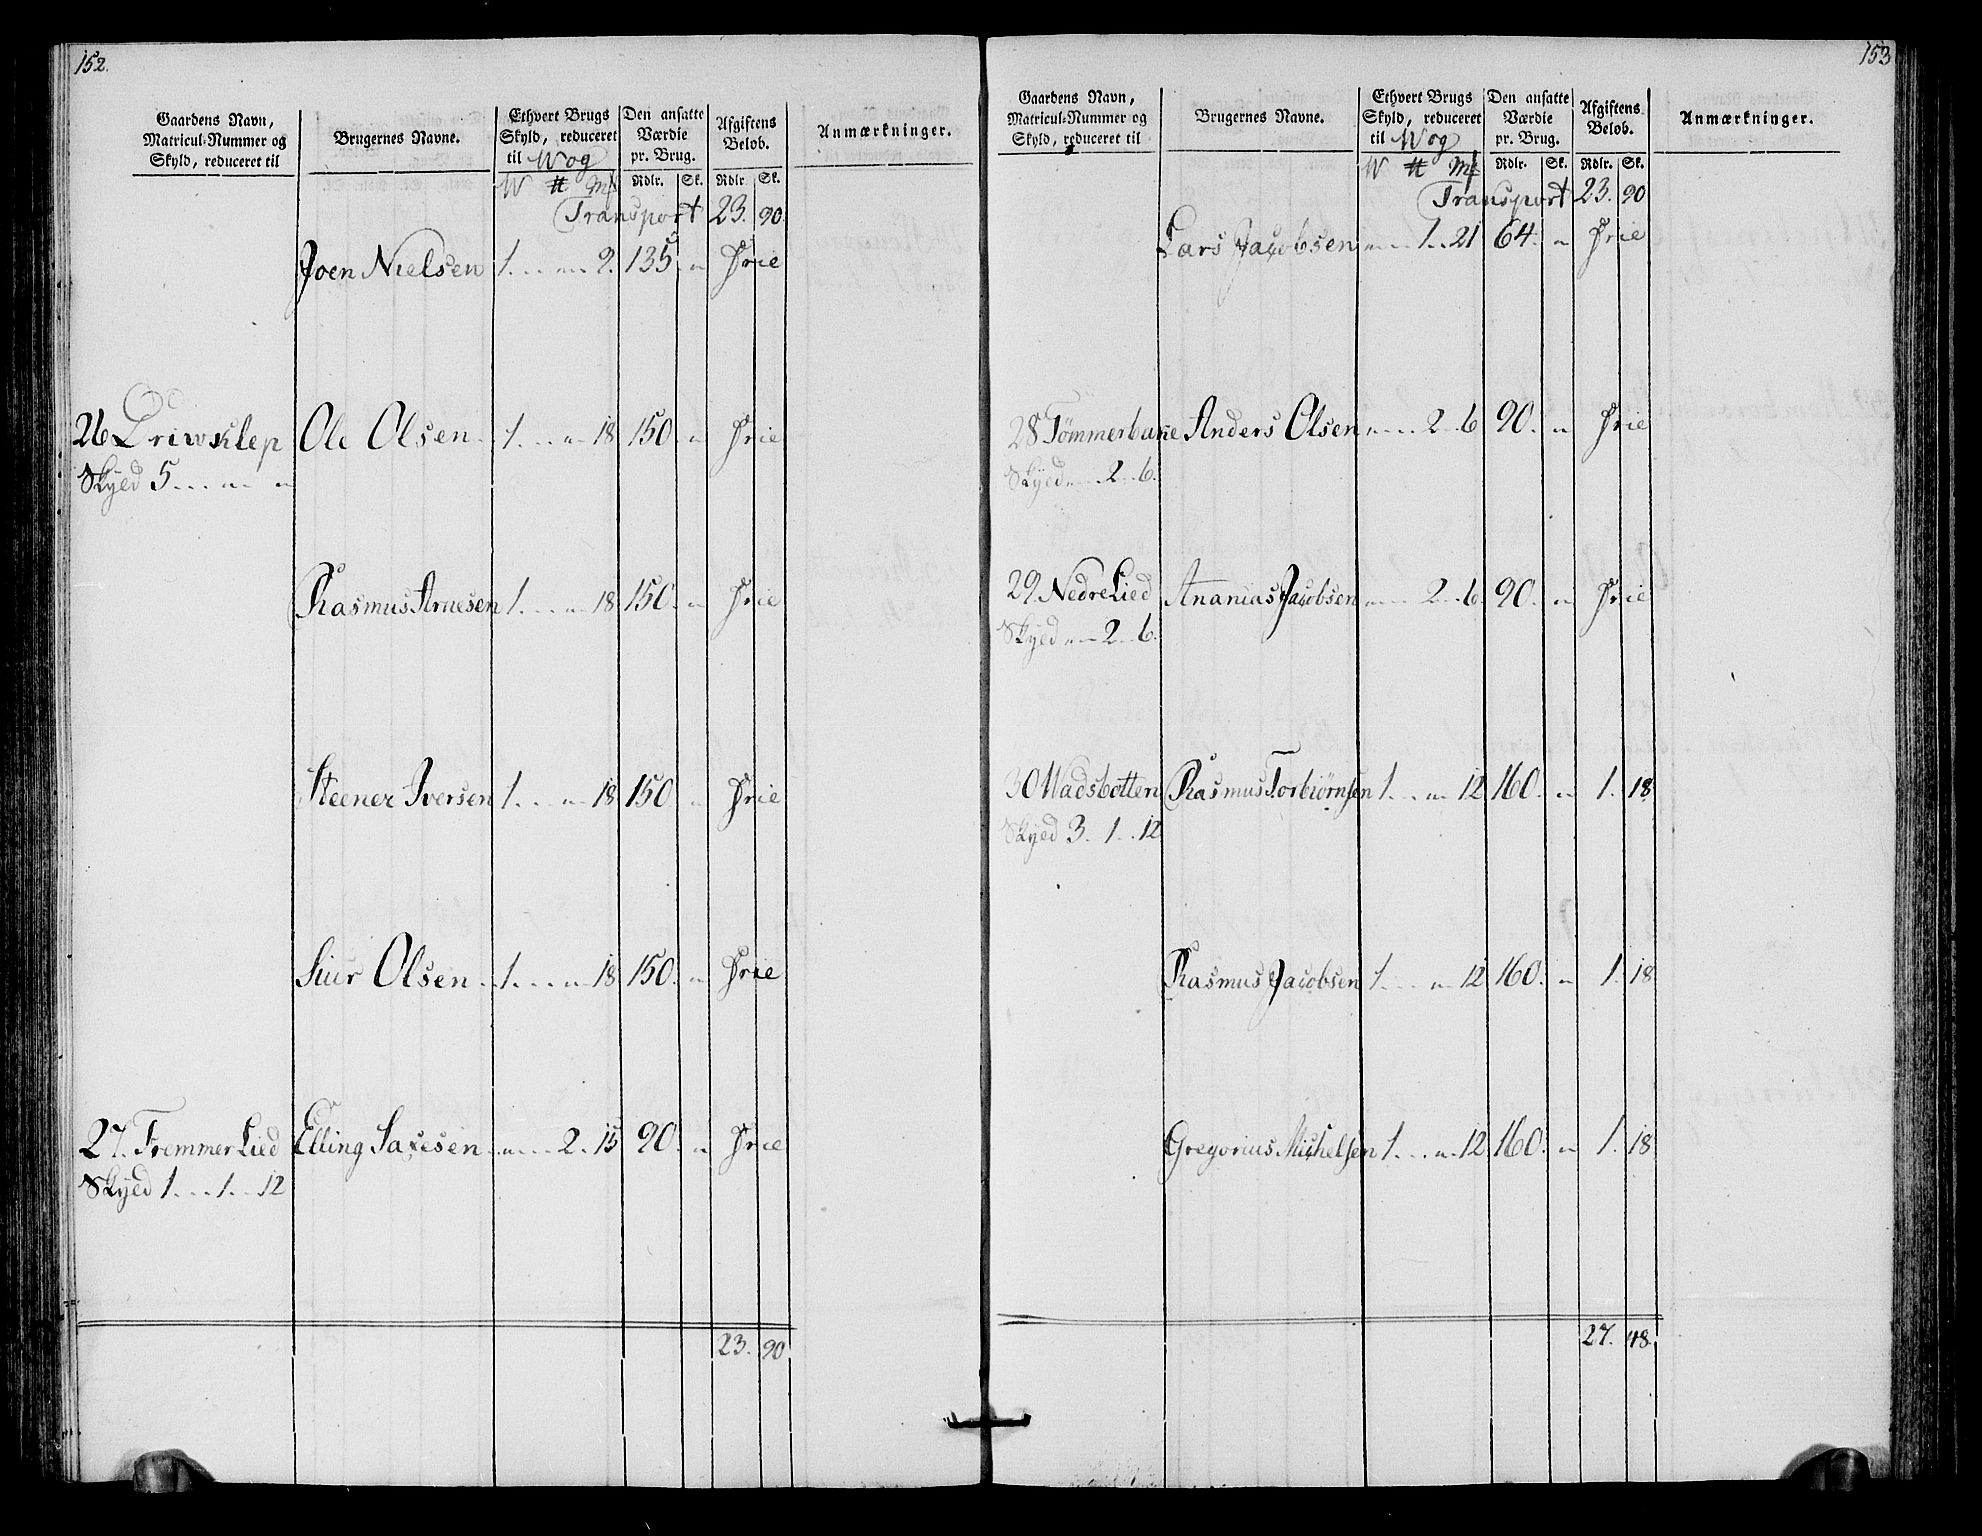 152.
Gaardens Navn,
Matricul-Nummer og
Skyld, reduceret til
Brugernes Navne.
Ethvert Brugs
Skyld, reduceret
til Wog
W # Mk
Den ansatte
Værdie
pr. Brug.
Rdlr. Sk.
Afgiftens
Beløb.
Rdlr. Sk.
Anmærkninger.
Transport 23. 90.
Joen Nielsen 1. . . „ 2. 135 „ Frie
26 Driwsklep Ole Olsen 1. . . „ 18 150 „ Frie
Skyld 5. . . „ „
Rasmus Arnesen 1. . . „ 18 150. „ Frie
Steener Iversen 1. . . „ 18 150 „ Frie
Siur Olsen 1. . . „ 18 150. „ Frie
27. Fremmer Lied Elling Saxesen „ . . 2. 15 90. „ Frie
Skyld 1. . . 1. . 12
23. 90
153
Gaardens Navn,
Matricul-Nummer og
Skyld, reduceret til
Brugernes Navne.
Ethvert Brugs
Skyld, reduceret
til Wog
W # Mk
Den ansatte
Værdie
pr. Brug.
Rdlr. Sk.
Afgiftens
Beløb.
Rdlr. Sk.
Anmærkninger.
Transport 23. 90
Lars Jacobsen „ . . 1. . 21 64. „ Frie
28 Tømmerbakke Anders Olsen „ . . 2 „ 6 90. „ Frie
Skyld „ . . 2 . . 6.
29. Nedre Lied Ananias Jacobsen „ . . 2 . . 6. 90. „ Frie
Skyld „ . . 2 . . 6.
30 Wadsbotten Rasmus Torbiørnsen 1. . . „ 12 160. „ 1. 18
Skyld 3. 1. . 12
Rasmus Jacobsen 1. . . „ 12 160. „ 1. 18
Gregorius Michelsen 1. . . „ 12 160. „ 1. 18
27. 48.